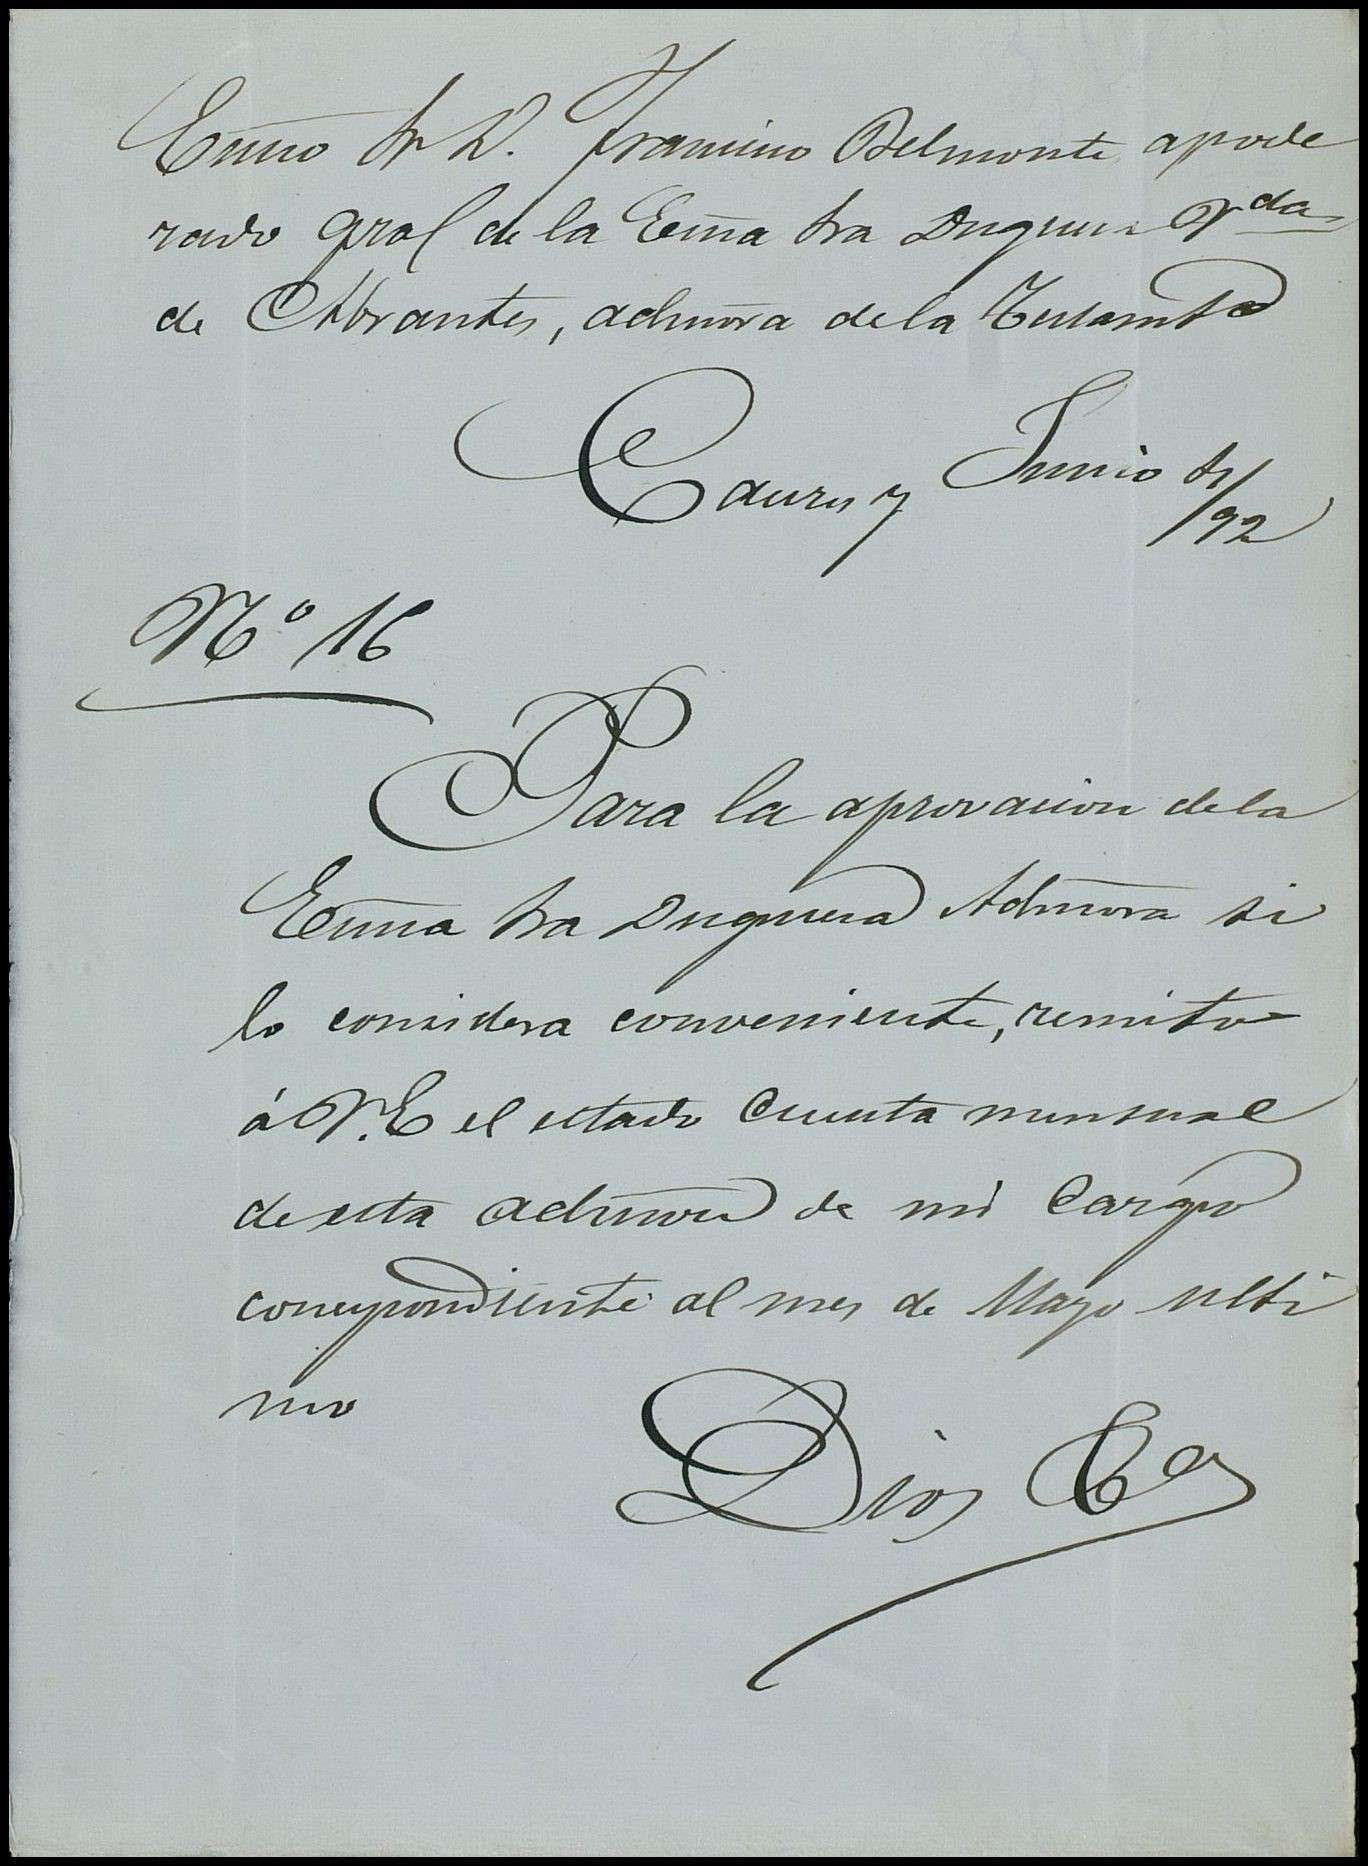 Exmo Sr D. Francisco Belmonte apode
rado gral de la Exma Sra Duquesa Vda
de Abrantes, admora de la Testamta
Caceres 7 Junio de
/92
Nº 16
Para la aprovacion de la
Exma Sra Duquesa Admora si
lo considera conveniente, remito
á V.E el estado cuenta mensual
de esta admon de mi cargo
correspondiente al mes de Mayo ulti
mo
Dios &a